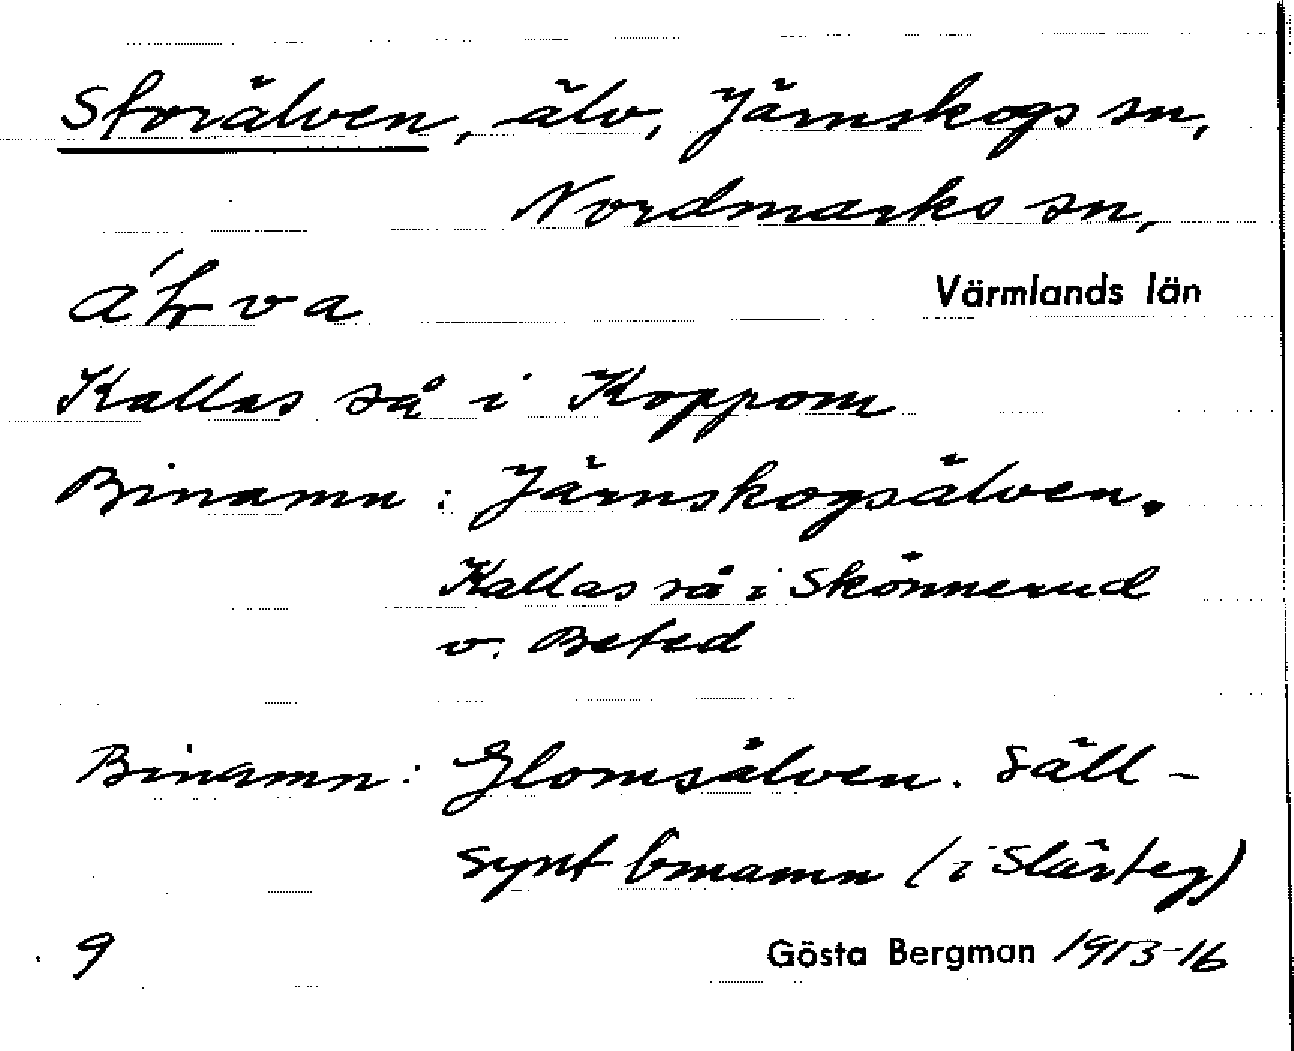 Storälven, älv, Järnskogs sn,
Nordmarks sn,
Värmlands län
Kallas så i Koppom
Binamn: Järnskogsälven.
Kallas så i Skönnerud
v. Beted
Binamn: Glomsälven. Säll-
synt binamn (i Slärteg)
9 Gösta Bergman 1913-16